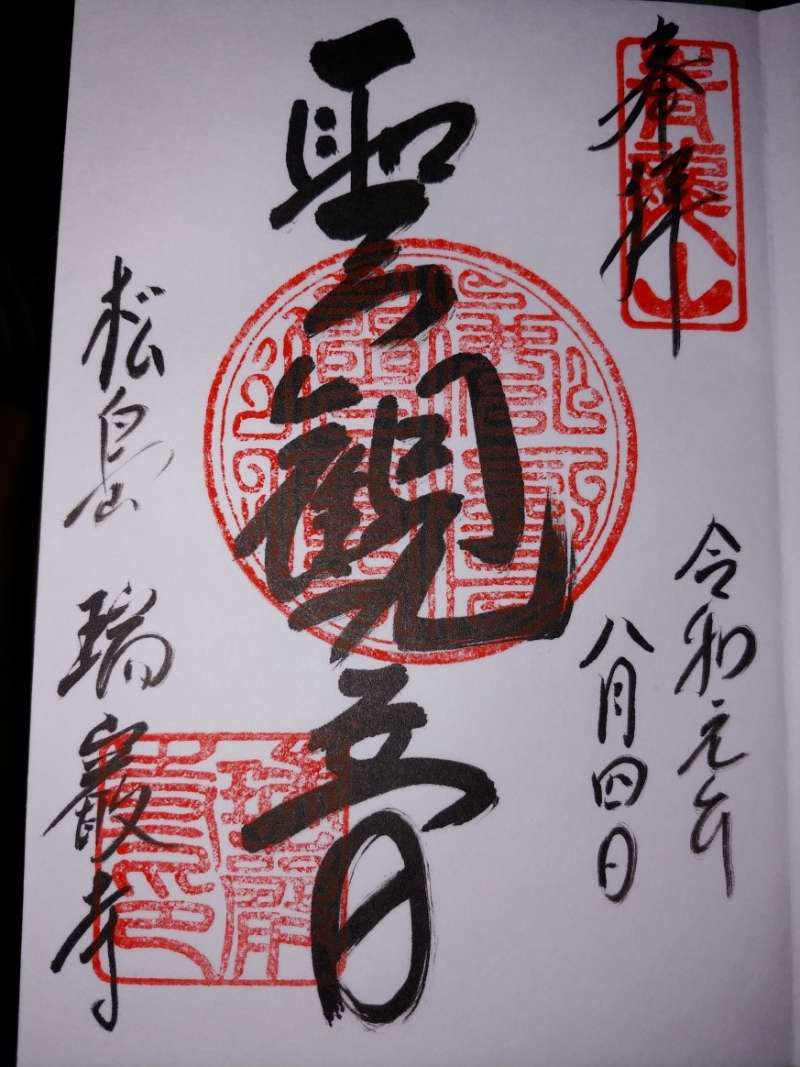 奉拝
青龍山
令和元年
八月四日
聖観音
松島 瑞巌寺